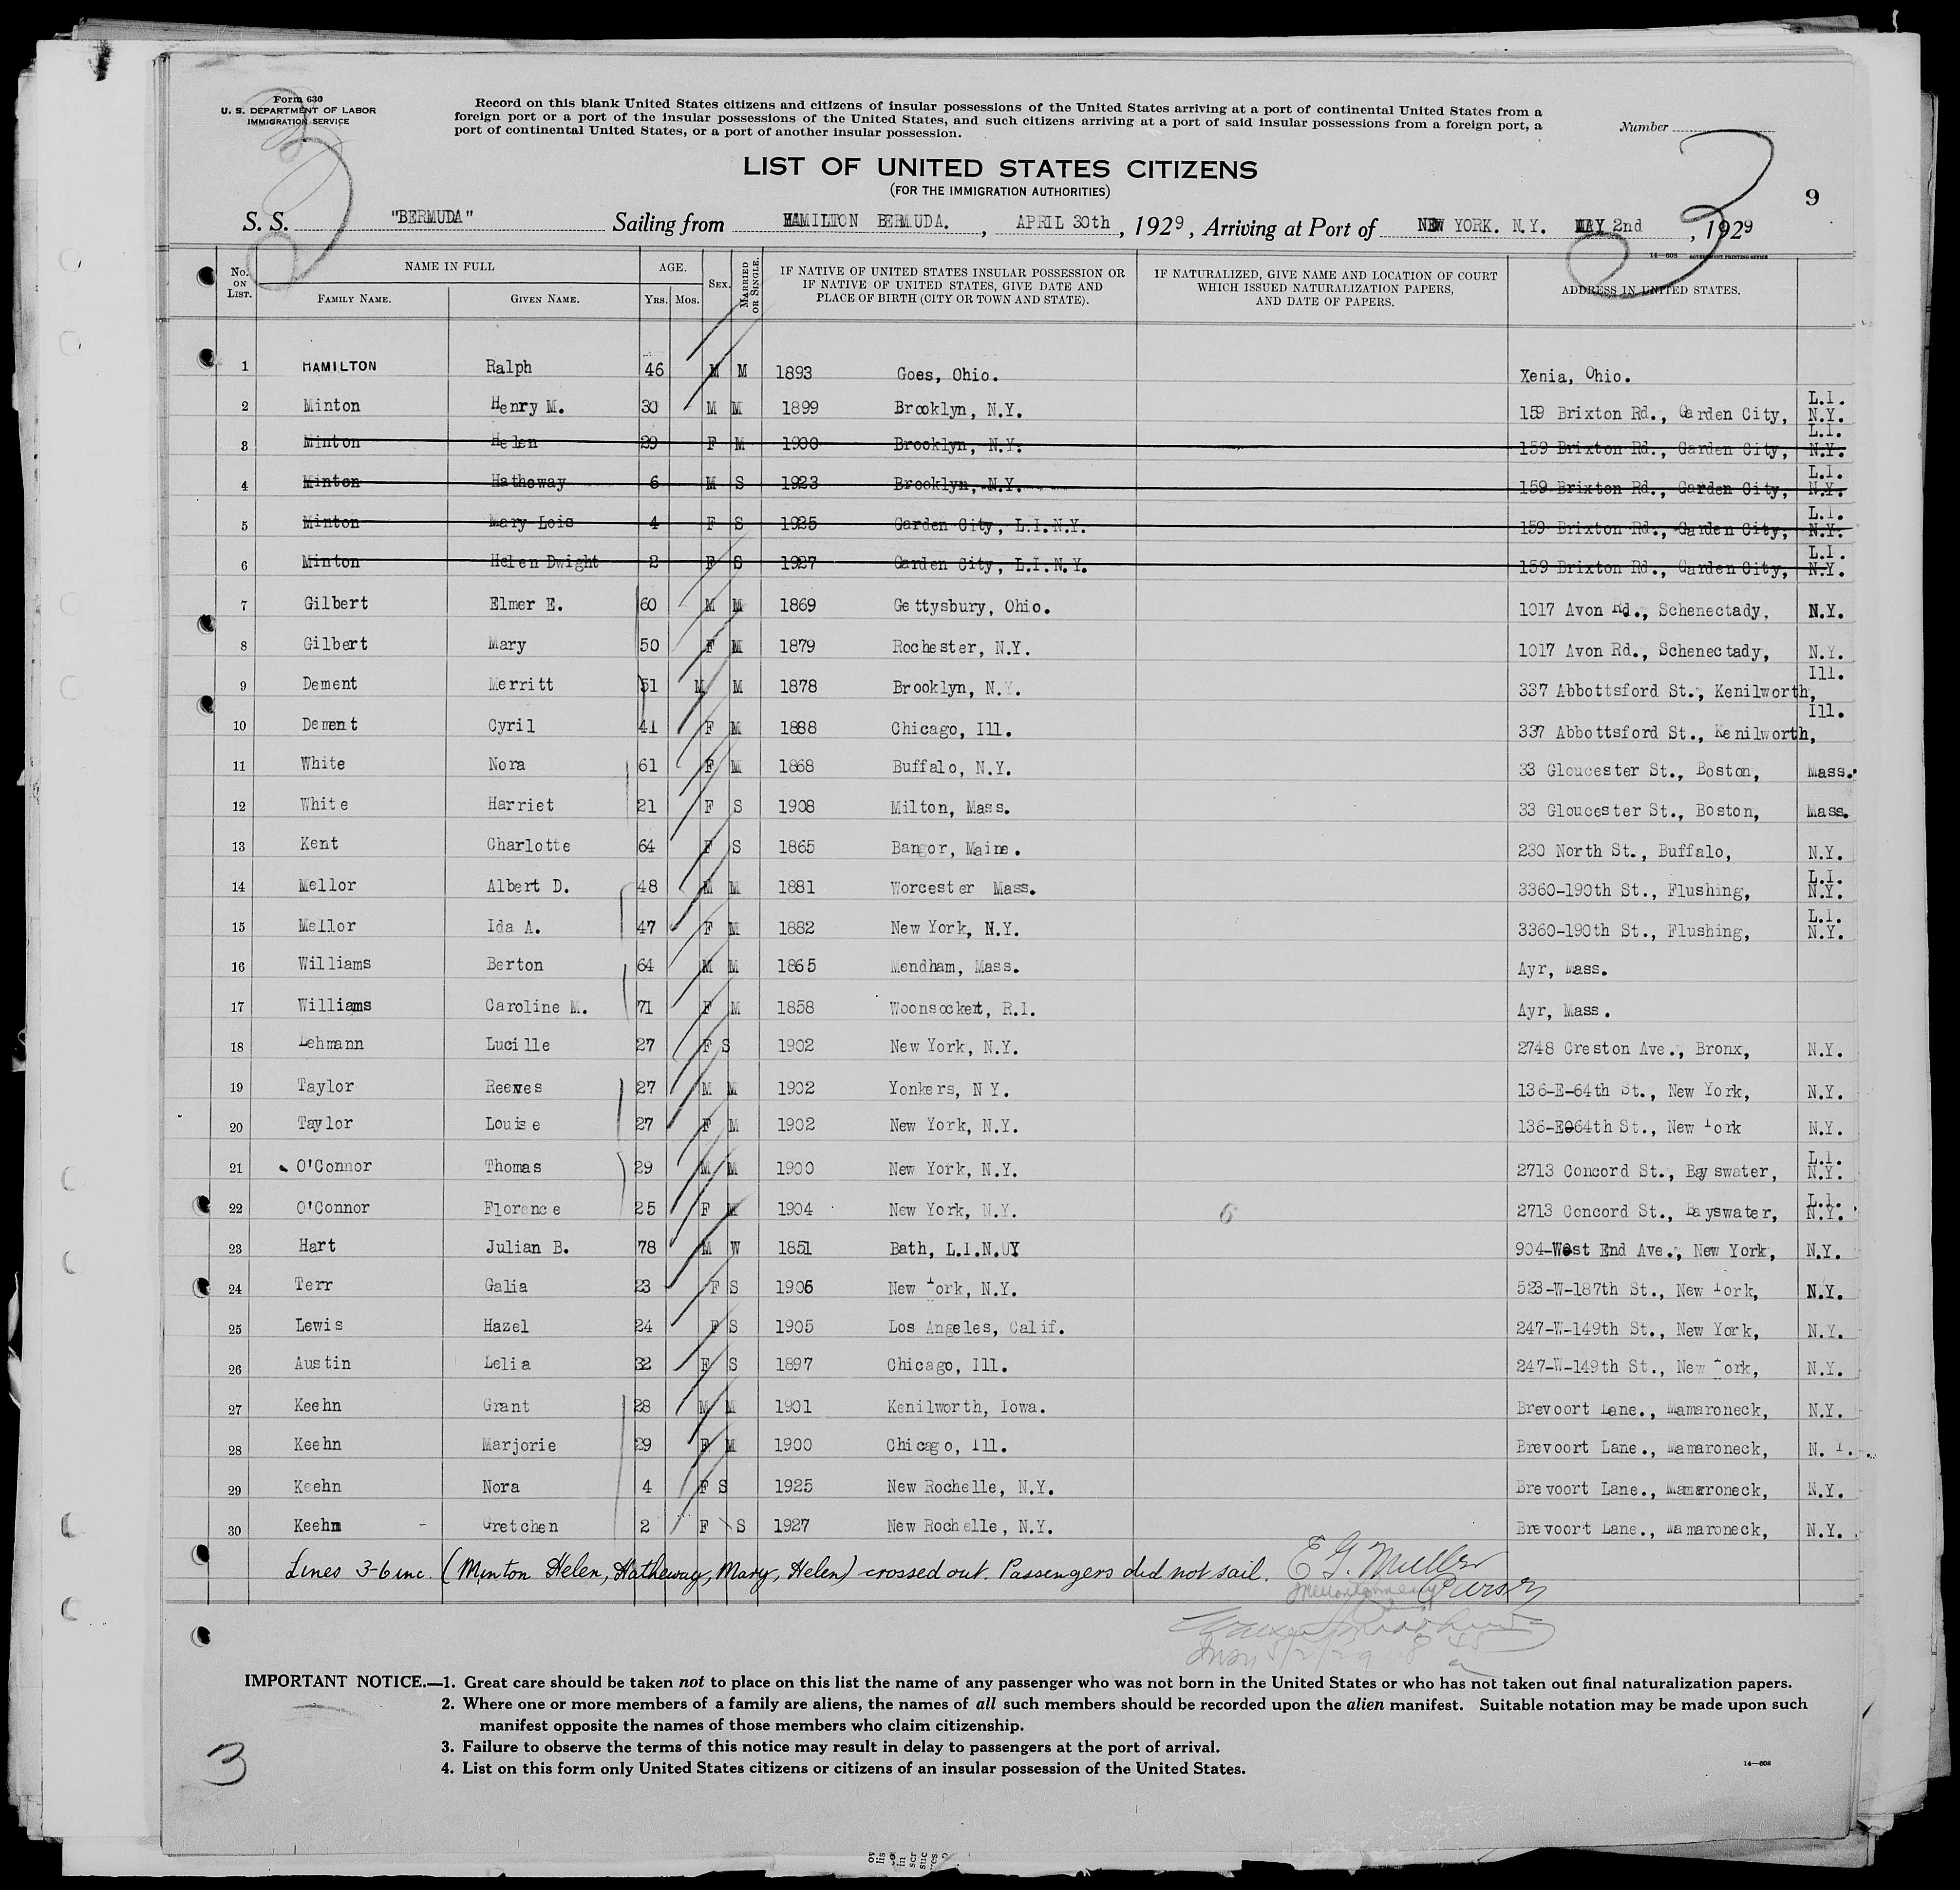 Form 630
U. S. DEPARTMENT OF LABOR
IMMIGRATION SERVICE
Record on this blank United States citizens and citizens of insular possessions of the United States arriving at a port of continental United States from a
foreign port or a port of the insular possessions of the United States, and such citizens arriving at a port of said insular possessions from a foreign port, a
port of continental United States, or a port of another insular possession.
Number
LIST OF UNITED STATES CITIZENS
(FOR THE IMMIGRATION AUTHORITIES)
9
S. S. "BERMUDA" Sailing from HAMILTON BERMUDA. , APRIL 30th , 1929 , Arriving at Port of NEW YORK. N.Y. MAY 2nd , 1929
14—608 GOVERNMENT PRINTING OFFICE
No. ON LIST. NAME IN FULL FAMILY NAME. GIVEN NAME. AGE. YRS. MOS. SEX. MARRIED OR SINGLE. IF NATIVE OF UNITED STATES INSULAR POSSESSION OR IF NATIVE OF UNITED STATES, GIVE DATE AND PLACE OF BIRTH (CITY OR TOWN AND STATE). IF NATURALIZED, GIVE NAME AND LOCATION OF COURT WHICH ISSUED NATURALIZATION PAPERS, AND DATE OF PAPERS. ADDRESS IN UNITED STATES.
1 HAMILTON Ralph 46 M M 1893 Goes, Ohio. Xenia, Ohio.
2 Minton Henry M. 30 M M 1899 Brooklyn, N.Y. 159 Brixton Rd., Garden City, L.I. N.Y.
3 Minton Helen 29 F M 1900 Brooklyn, N.Y. 159 Brixton Rd., Garden City, L.I. N.Y.
4 Minton Hathoway 6 M S 1923 Brooklyn, N.Y. 159 Brixton Rd., Garden City, L.I. N.Y.
5 Minton Mary Lois 4 F S 1925 Garden City, L.I.N.Y. 159 Brixton Rd., Garden City, L.I. N.Y.
6 Minton Helen Dwight 2 F S 1927 Garden City, L.I.N.Y. 159 Brixton Rd., Garden City, L.I. N.Y.
7 Gilbert Elmer E. 60 M M 1869 Gettysbury, Ohio. 1017 Avon Rd., Schenectady, N.Y.
8 Gilbert Mary 50 F M 1879 Rochester, N.Y. 1017 Avon Rd., Schenectady, N.Y.
9 Dement Merritt 51 M M 1878 Brooklyn, N.Y. 337 Abbottsford St., Kenilworth, Ill.
10 Dement Cyril 41 F M 1888 Chicago, Ill. 337 Abbottsford St., Kenilworth, Ill.
11 White Nora 61 F M 1868 Buffalo, N.Y. 33 Gloucester St., Boston, Mass.
12 White Harriet 21 F S 1908 Milton, Mass. 33 Gloucester St., Boston, Mass.
13 Kent Charlotte 64 F S 1865 Bangor, Maine. 230 North St., Buffalo, N.Y.
14 Mellor Albert D. 48 M M 1881 Worcester Mass. 3360-190th St., Flushing, L.I. N.Y.
15 Mellor Ida A. 47 F M 1882 New York, N.Y. 3360-190th St., Flushing, L.I. N.Y.
16 Williams Berton 64 M M 1865 Mendham, Mass. Ayr, Mass.
17 Williams Caroline M. 71 F M 1858 Woonsocket, R.I. Ayr, Mass.
18 Lehmann Lucille 27 F S 1902 New York, N.Y. 2748 Creston Ave., Bronx, N.Y.
19 Taylor Reeves 27 M M 1902 Yonkers, N Y. 136-E-64th St., New York, N.Y.
20 Taylor Louise 27 F M 1902 New York, N.Y. 136-E064th St., New York N.Y.
21 O'Connor Thomas 29 M M 1900 New York, N.Y. 2713 Concord St., Bayswater, L.I. N.Y.
22 O'Connor Florence 25 F M 1904 New York, N.Y. 6 2713 Concord St., Bayswater, L.I. N.Y.
23 Hart Julian B. 78 M W 1851 Bath, L.I.N.UY 904-West End Ave., New York, N.Y.
24 Terr Galia 23 F S 1906 New York, N.Y. 523-W-187th St., New York, N.Y.
25 Lewis Hazel 24 F S 1905 Los Angeles, Calif. 247-W-149th St., New York, N.Y.
26 Austin Lelia 32 F S 1897 Chicago, Ill. 247-W-149th St., New York, N.Y.
27 Keehn Grant 28 M M 1901 Kenilworth, Iowa. Brevoort Lane., Mamaroneck, N.Y.
28 Keehn Marjorie 29 F M 1900 Chicago, Ill. Brevoort Lane., Mamaroneck, N. Y.
29 Keehn Nora 4 F S 1925 New Rochelle, N.Y. Brevoort Lane., Mamaroneck, N.Y.
30 Keehn Gretchen 2 F S 1927 New Rochelle, N.Y. Brevoort Lane., Mamaroneck, N.Y.
Lines 3-6 inc. (Minton Helen, Hatheway, Mary, Helen) crossed out. Passengers did not sail. E G. Muller
Purser
5/2/29 8 45 a
IMPORTANT NOTICE.—1. Great care should be taken not to place on this list the name of any passenger who was not born in the United States or who has not taken out final naturalization papers.
2. Where one or more members of a family are aliens, the names of all such members should be recorded upon the alien manifest. Suitable notation may be made upon such
manifest opposite the names of those members who claim citizenship.
3. Failure to observe the terms of this notice may result in delay to passengers at the port of arrival.
4. List on this form only United States citizens or citizens of an insular possession of the United States.
14—608
3